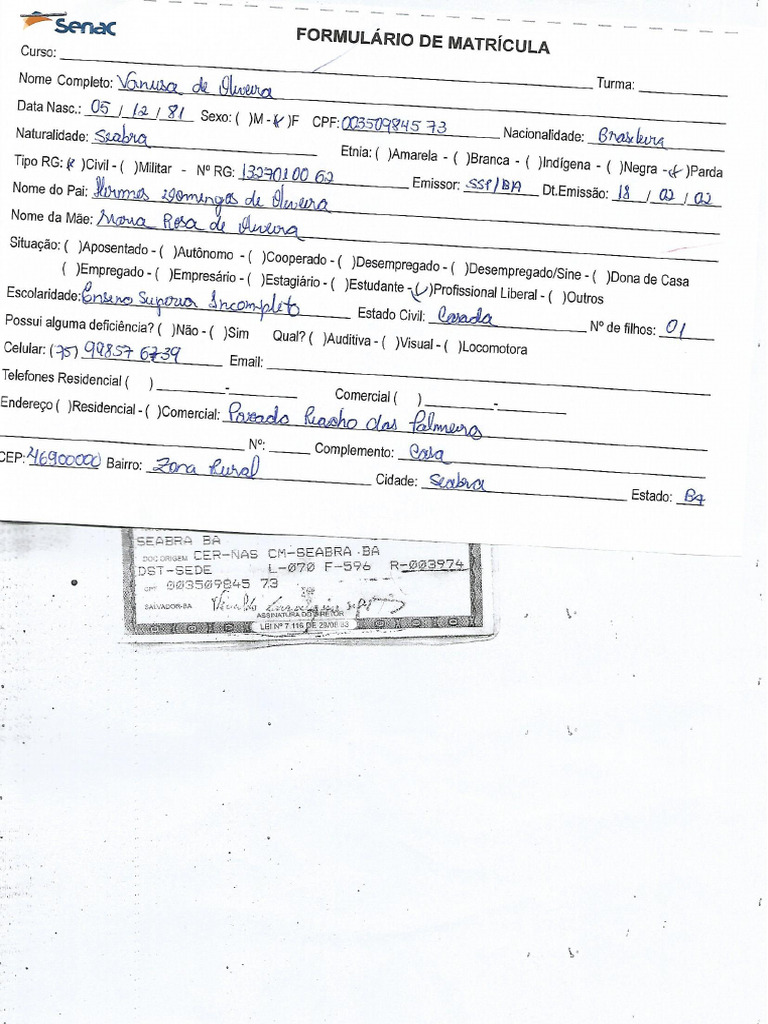 Senac
FORMULÁRIO DE MATRÍCULA
Curso: Turma:
Nome Completo: Vanusa de Oliveira
Data Nasc.: 05 / 12 / 81 Sexo: ( )M - (x)F CPF: 003509845 73 Nacionalidade: Brasileira
Naturalidade: Seabra Etnia: ( )Amarela - ( )Branca - ( )Indígena - ( )Negra - (x)Parda
Tipo RG: (x)Civil - ( )Militar - Nº RG: 1327010062 Emissor: SSP/BA Dt.Emissão: 18 / 02 / 02
Nome do Pai: Hermes Domingos de Oliveira
Nome da Mãe: Maria Rosa de Oliveira
Situação: ( )Aposentado - ( )Autônomo - ( )Cooperado - ( )Desempregado - ( )Desempregado/Sine - ( )Dona de Casa
( )Empregado - ( )Empresário - ( )Estagiário - ( )Estudante - (✓)Profissional Liberal - ( )Outros
Escolaridade: Ensino Superior Incompleto Estado Civil: Casada Nº de filhos: 01
Possui alguma deficiência? ( )Não - ( )Sim Qual? ( )Auditiva - ( )Visual - ( )Locomotora
Celular: (75) 99857 6739 Email:
Telefones Residencial ( ) - Comercial ( ) -
Endereço ( )Residencial - ( )Comercial: Povoado Riacho das Palmeiras
Nº: Complemento: Casa
CEP: 46900000 Bairro: Zona Rural Cidade: Seabra Estado: BA
SEABRA BA
DOC ORIGEM CER-NAS CM-SEABRA BA
DST-SEDE L-070 F-596 R-003974
CPF 003509845 73
SALVADOR-BA
ASSINATURA DO DIRETOR
LEI Nº 7.116 DE 29/08/83